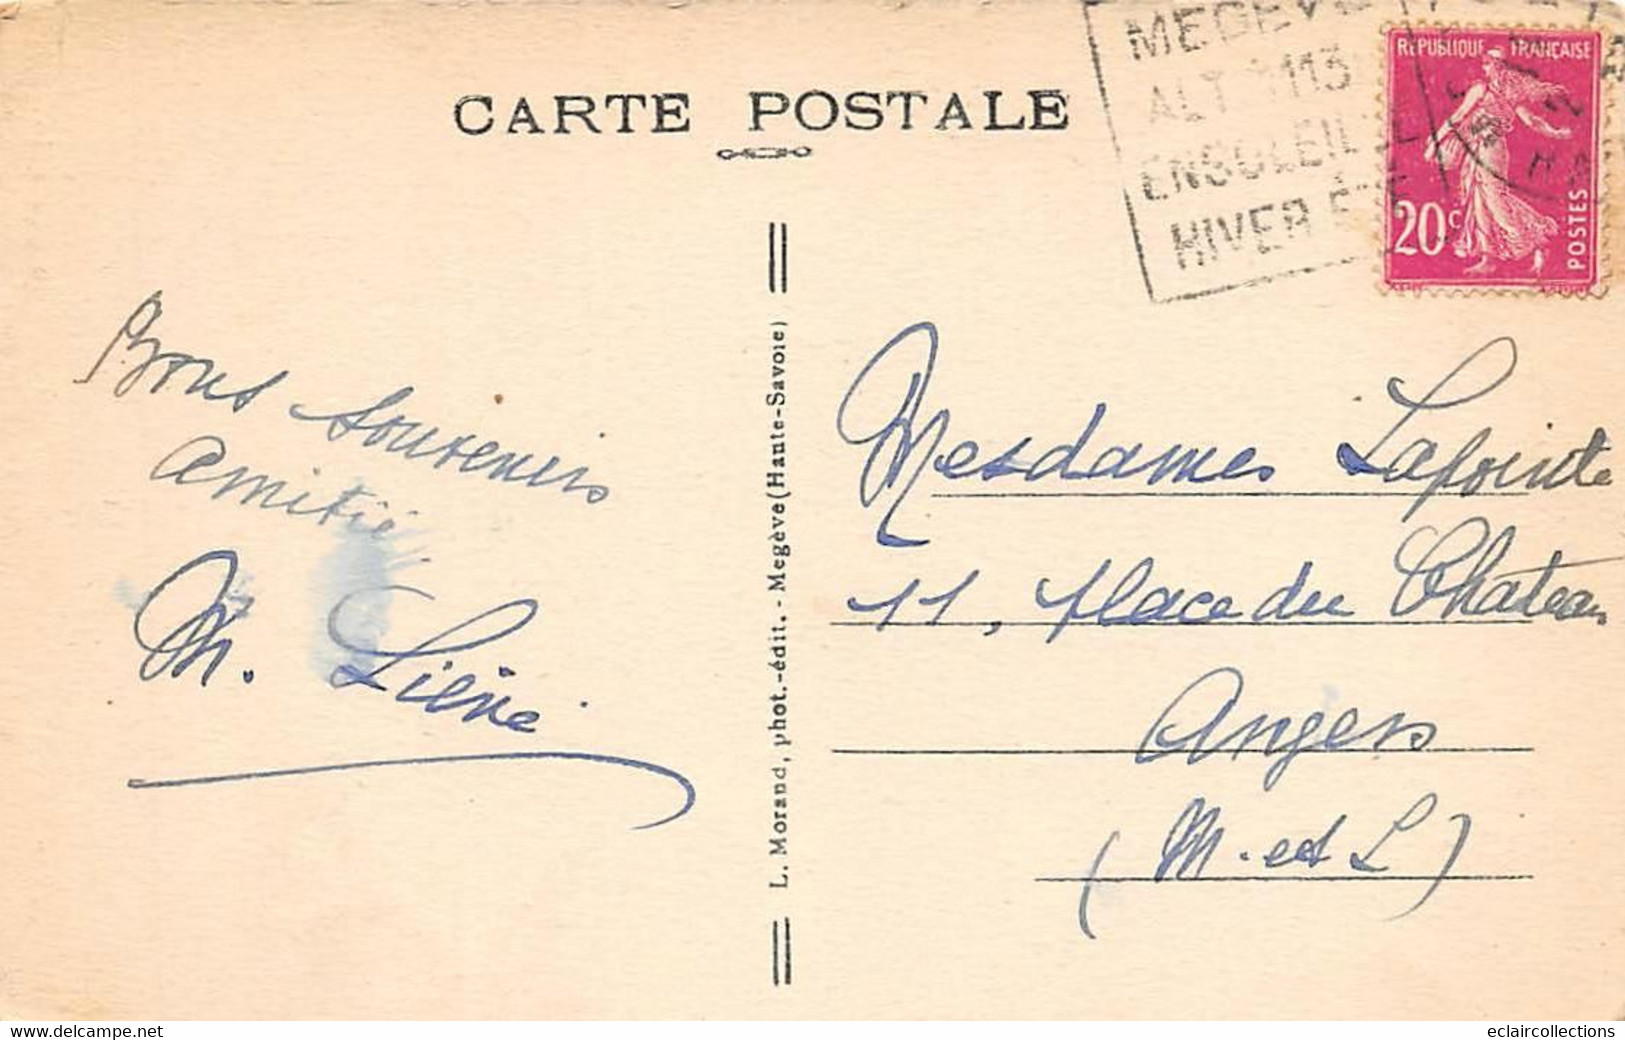 CARTE POSTALE
MEGEVE
ALT 1113
ENSOLEILLE
HIVER ETE
REPUBLIQUE FRANÇAISE
20c
POSTES
Bons souvenirs
amitié
M.
L. Morand, phot.-édit. - Megève (Haute-Savoie)
Mesdames Lapointe
11, place du Château
Angers
(M. et L)
www.delcampe.net
eclaircollections